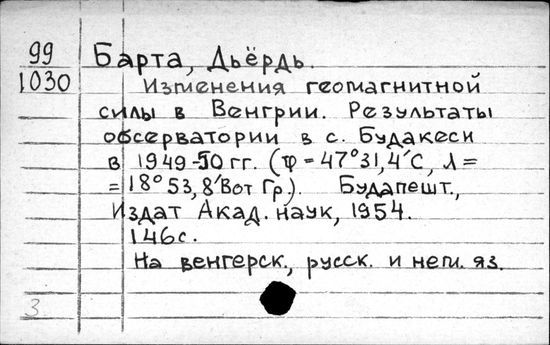 99
1030
Барта, Дьёрдь.
Изменения геомагнитной
силы в Венгрии. Результаты
обсерватории в с. Будакеси
в 1949-50 гг. (φ = 47°31,4'С, λ =
= 18° 53,8'Вот Гр.). Будапешт.,
Издат Акад. наук, 1954.
146с.
На венгерск., русск. и нем. яз.
3